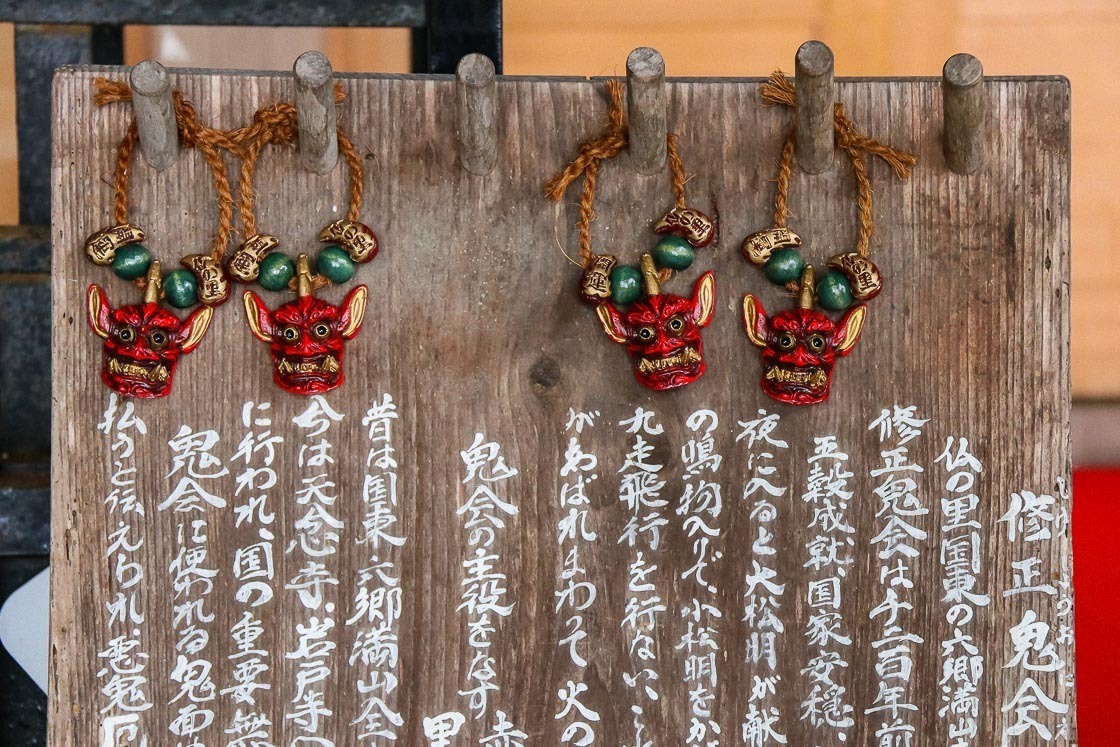 修正鬼会
仏の里国東の六郷満山
修正鬼会は千二百年前
五穀成就、国家安穏、
夜に入ると大松明が献
の鳴物入りで、小松明をか
九走飛行を行ない、
があばれまわって火の
鬼会の主役をなす
昔は国東六郷満山全
今は天念寺、岩戸寺
に行われ、国の重要無
鬼会に使われる鬼面
払うと伝えられ悪鬼